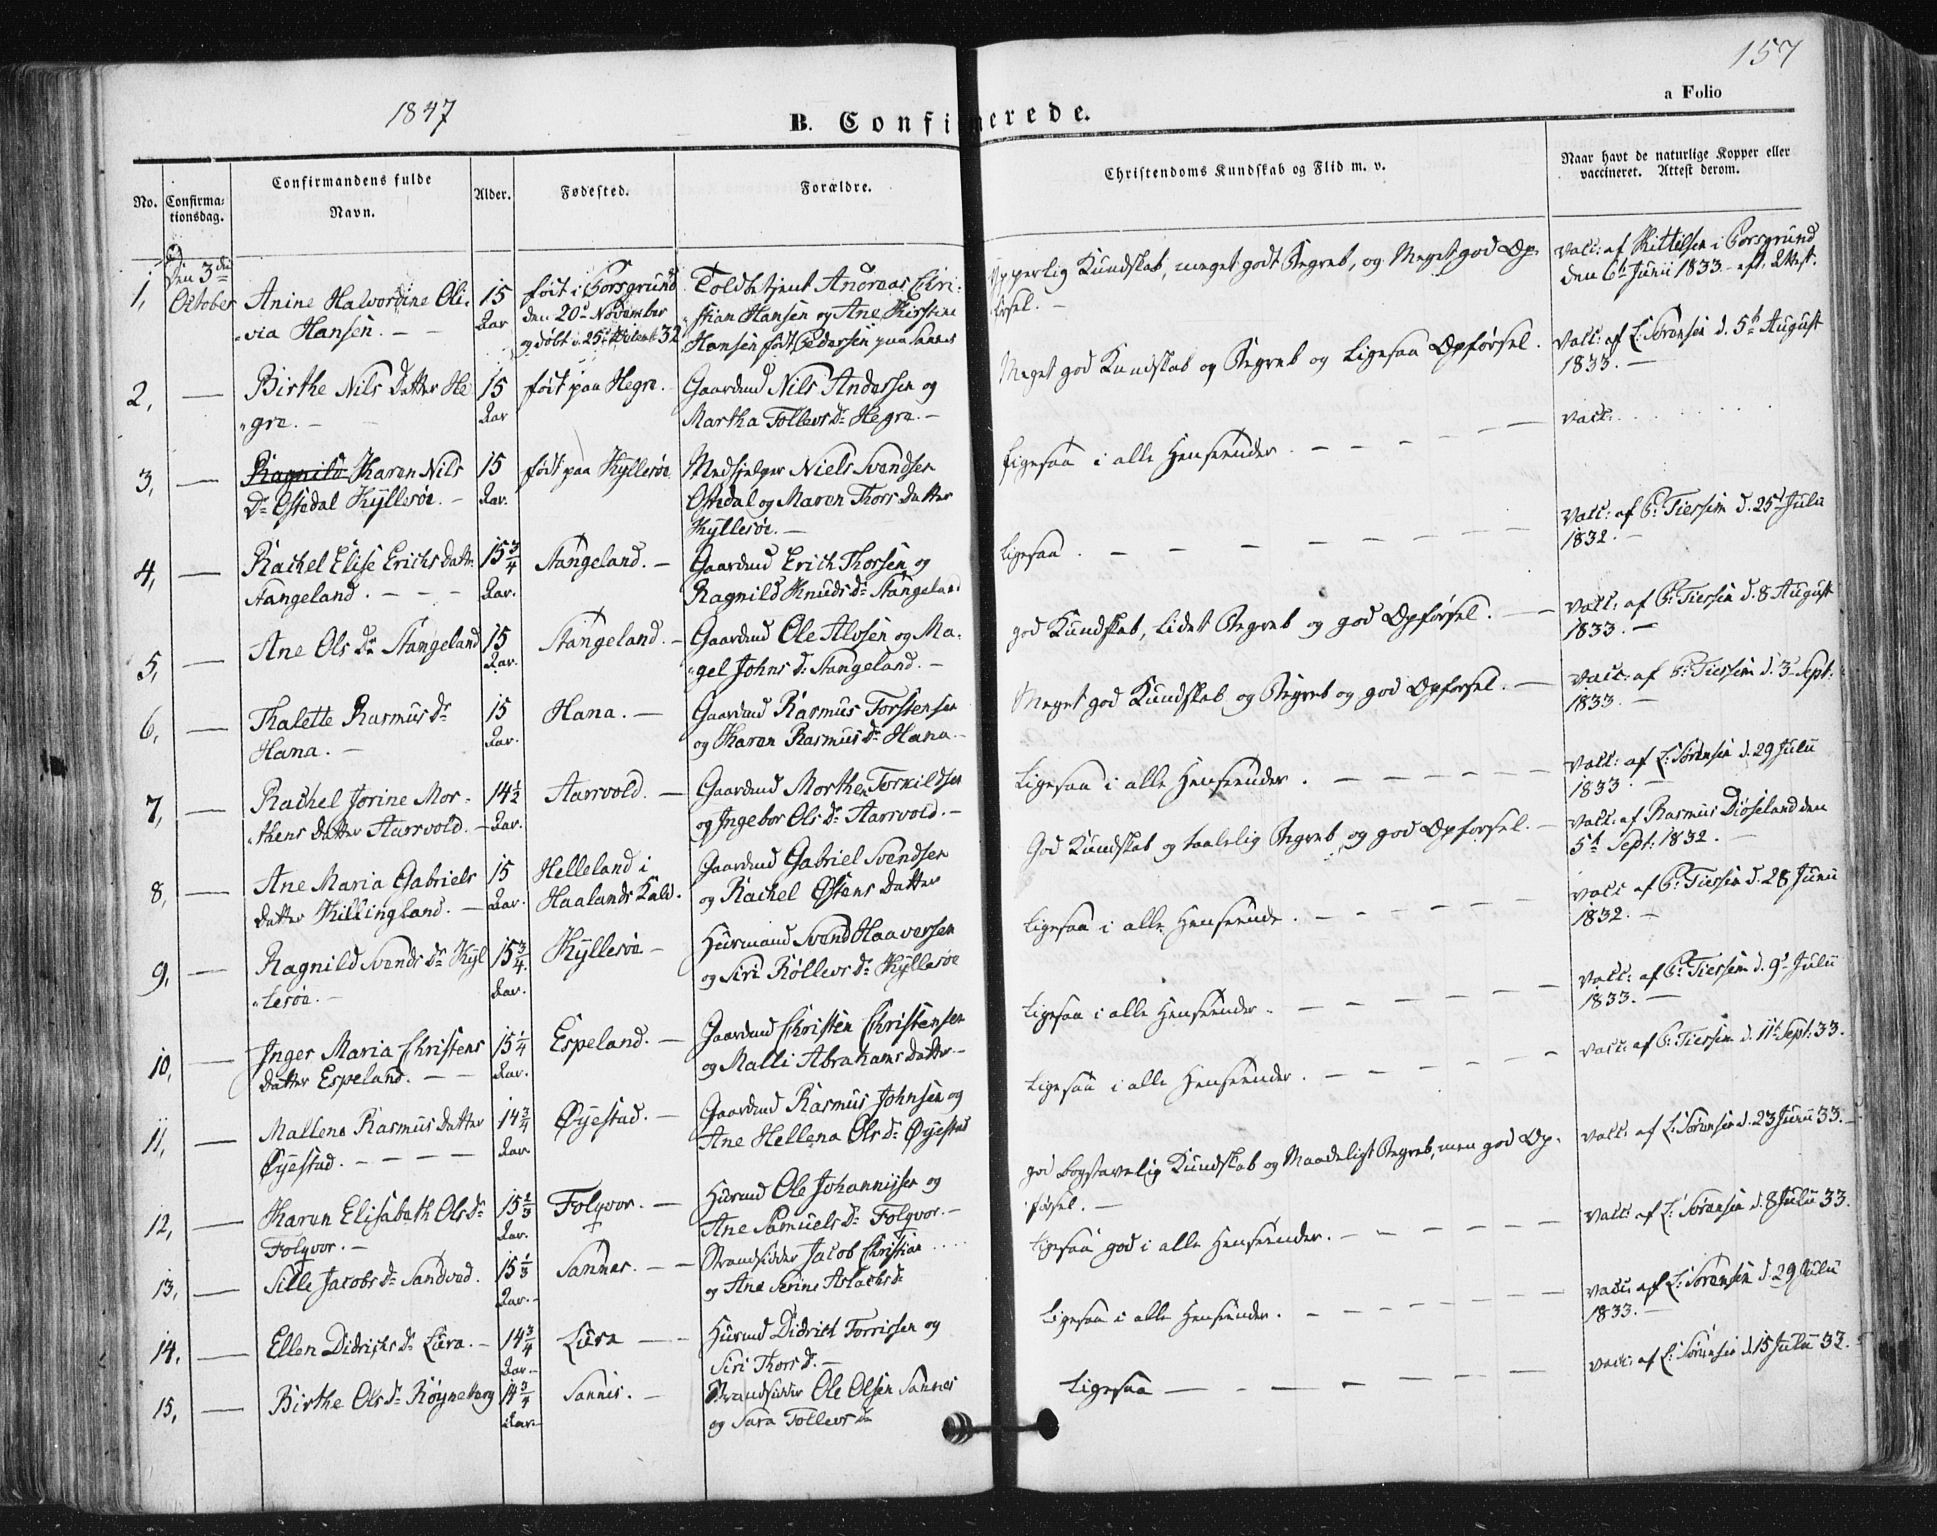 157
a Folio
1847
B. Confirmerede.
No.
Confirmationsdag.
Confirmandens fulde Navn.
Alder.
Fødested.
Forældre.
Christendoms Kundskab og Flid m. v.
Naar havt de naturlige Kopper eller vaccineret. Attest derom.
1, Den 3die October
Anine Halvordine Oli-
via Hansen. —
15 Aar
født i Porsgrund
den 20de November
og døbt d. 25de 32
Toldbetjent Andreas Chri-
stian Hansen og Ane Kirstine
Hansen født Pedersen paa Sannes
Ypperlig Kundskab, meget godt Begreb, og Meget god Op-
førsel. —
Vacc: af Kittelsen i Porsgrund
den 6te Junii 1833 - eft. Attest.
2, —
Birthe Nils Datter He
gre. —
15 Aar
født paa Hegre.
Gaardmd Nils Andersen og
Martha Tollevs Dr Hegre. —
Meget god Kundskab og Begreb og Ligesaa Opførsel.
Vacc: af L. Sørensen d. 5te August
1833. —
3, —
Ragnild Karen Nils
Dr Østedal Kyllesøe. —
15 Aar.
født paa Kyllesøe
Medhjelper Niels Svendsen
Østedal og Maren Thors Datter
Kyllesøe. —
Ligesaa i alle Henseender. — — —
Vacc: . . . . . .
4, —
Rachel Elise Erichs Datr
Stangeland. — — —
15 3/4 Aar.
Stangeland. —
Gaardmd Erich Thorsen og
Ragnild Knuds Dr Stangeland
Ligesaa. — — — —
Vacc: af P: Tiersen d. 25de Julii
1832. —
5, —
Ane Ols Dr Stangeland
15 Aar.
Stangeland. —
Gaardmd Ole Alvsen og Ma-
gel Johns Dr Stangeland. —
god Kundskab, Lidet Begreb og god Opførsel. —
Vacc: af P: Tiersen d. 8 August
1833. —
6, —
Thalette Rasmus Dr
Hana. —
15 Aar.
Hana. —
Gaardmd Rasmus Torstensen
og Karen Rasmus Dr Hana. —
Meget god Kundskab og Begreb og god Opførsel. —
Vacc: af P: Tiersen d. 3 Sept:
1833. —
7, —
Rachel Jorine Mor-
thens Datter Aarvold. —
14 1/2 Aar.
Aarvold. —
Gaardmd Morthen Torkildsen
og Ingebor Ols Dr Aarvold. —
Ligesaa i alle Henseender. — — —
Vacc: af L: Sørensen d. 29 Julii
1833. —
8, —
Ane Maria Gabriels
Datter Killingland. —
15 Aar.
Helleland i
Haalands Kald.
Gaardmd Gabriel Svendsen
og Rachel Østens Datter
God Kundskab og taalelig Begreb, og god Opførsel. —
Vacc: af Rasmus Diøseland den
5te Sept: 1832. —
9, —
Ragnild Svends Dr Kyl
lesøe. —
15 3/4 Aar.
Kyllesøe —
Huusmand Svend Haaversen
og Siri Rollevs Dr Kyllesøe
Ligesaa i alle Henseende. — — —
Vacc: af P: Tiersen d. 28 Junii
1832. —
10, —
Inger Maria Christens
Datter Espeland. — —
15 1/4 Aar.
Espeland. —
Gaardmd Christen Christensen
og Malli Abrahams Datter —
Ligesaa i alle Henseender. — — —
Vacc: af P: Tiersen d. 9de Julii
1833. —
11, —
Mallene Rasmus Datter
Øyestad. — — — —
14 3/4 Aar
Øyestad. —
Gaardmd Rasmus Johnsen og
Ane Hellena Ols Dr Øyestad
Ligesaa i alle Henseender. — — —
Vacc: af P: Tiersen d. 11te Sept: 33.
12, —
Karen Elisabeth Ols Dr
Folqvor. —
15 2/3 Aar.
Folqvor. —
Huusmd Ole Johannissen og
Ane Samuels Dr Folqvor. —
god bogstavelig Kundskab og Maadeligt Begreb, men god Op-
førsel. —
Vacc: af L: Sørensen d. 23 Junii 33. —
13, —
Sille Jacobs Dr Sandved.
15 1/3 Aar. —
Sannes. — —
Strandsidder Jacob Christian . . . .
og Ane Serine Aslachs Dr
Ligesaa god i alle Henseender. — — —
Vacc: af L: Sørensen d. 8 Julii 33.
14, —
Ellen Didrichs Dr Lura. —
14 3/4 Aar. —
Lura — —
Huusmd Didrich Torrissen og
Siri Thors Dr. —
Ligesaa i alle Henseender. — — —
Vacc: af L: Sørensen d. 29 Julii
1833. —
15, —
Birthe Ols Dr Røyneberg
14 3/4 Aar. —
Sannes. —
Strandsidder Ole Olsen Sannes
og Sara Tollevs Dr
Ligesaa — — — —
Vacc: af L: Sørensen d. 15 Julii 32.